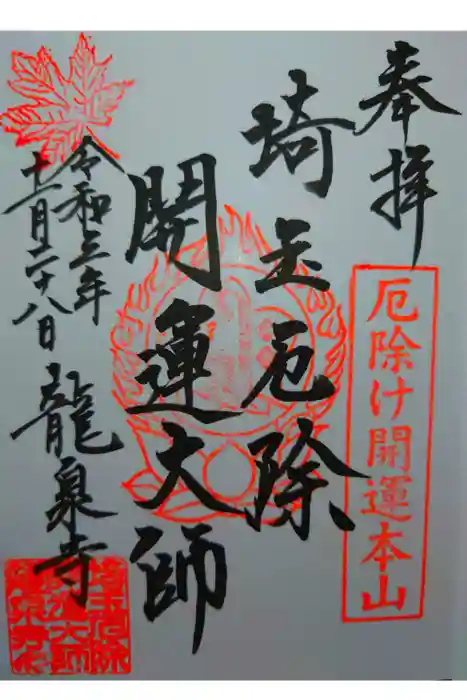 奉拝
厄除け開運本山
埼玉厄除
開運大師
令和三年
十一月二十八日
龍泉寺